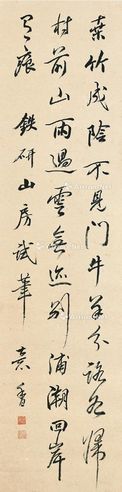 桑竹成陰不見門牛羊分路各歸
村前山雨過雲無迹別浦潮回岸
有痕 鐵研山房試筆